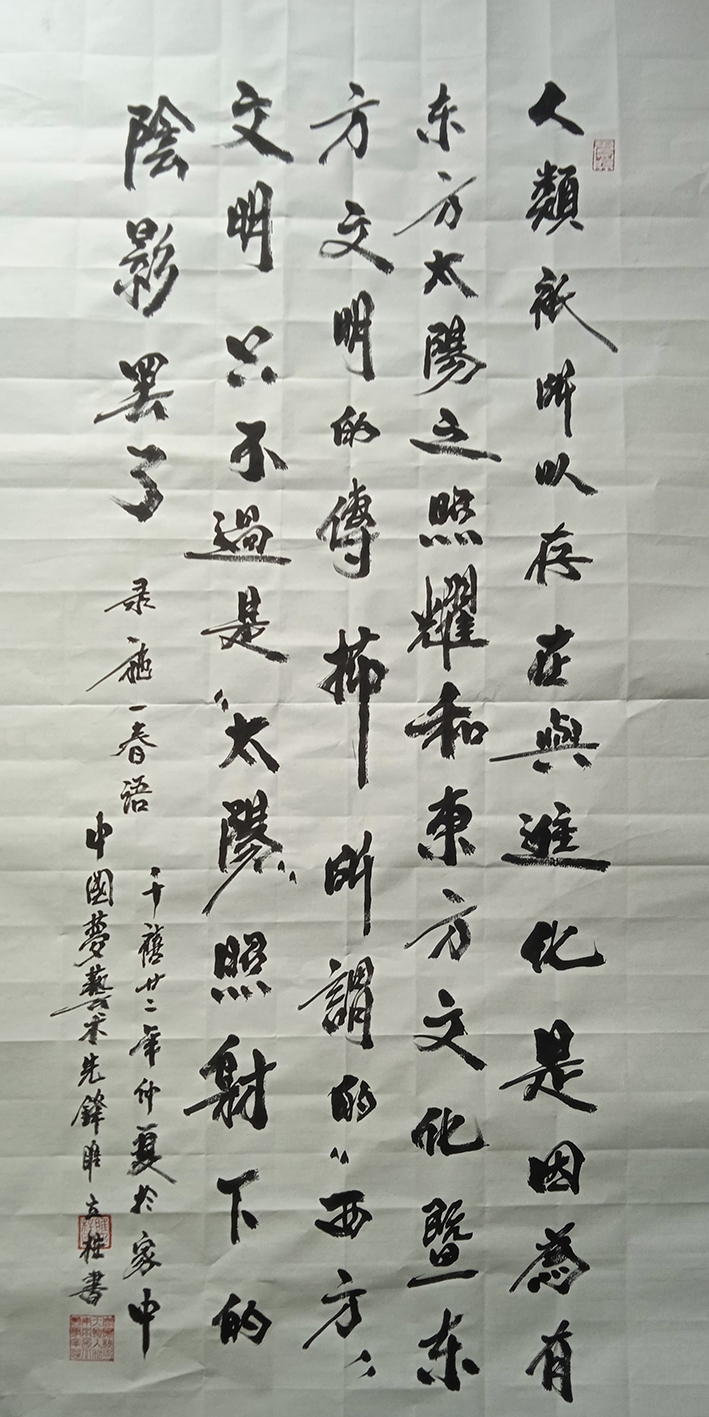 人類衹所以存在與進化是因為有
东方太陽之照耀和東方文化暨东
方文明的傳揶所謂的“西方”
文明只不過是“太陽”照射下的
陰影罢了
录施一春语
千禧廿二年仲夏於家中
中國夢藝术先鋒 立柱書